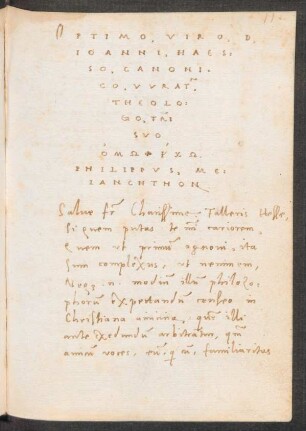 OPTIMO. VIRO. D.
IOANNI. HAES-
SO. CANONI-
CO. VVRAT.
THEOLO:
GO. FRI
SVO
ὉΜΟΨΥΧΩ.
PHILIPPVS. ME:
LANCHTHON
Salue Charissime Falleris Hesse,
Si quem putas te mihi cariorem,
Quem vt primum agnoui, ita
Sum complexus, vt neminem,
Neque. n. modium illum philoso,
phorum expectandum censeo in
Christiana amicitia. quem illi
ante exedendum arbitrantur, quam
amicum voces, familiaritas